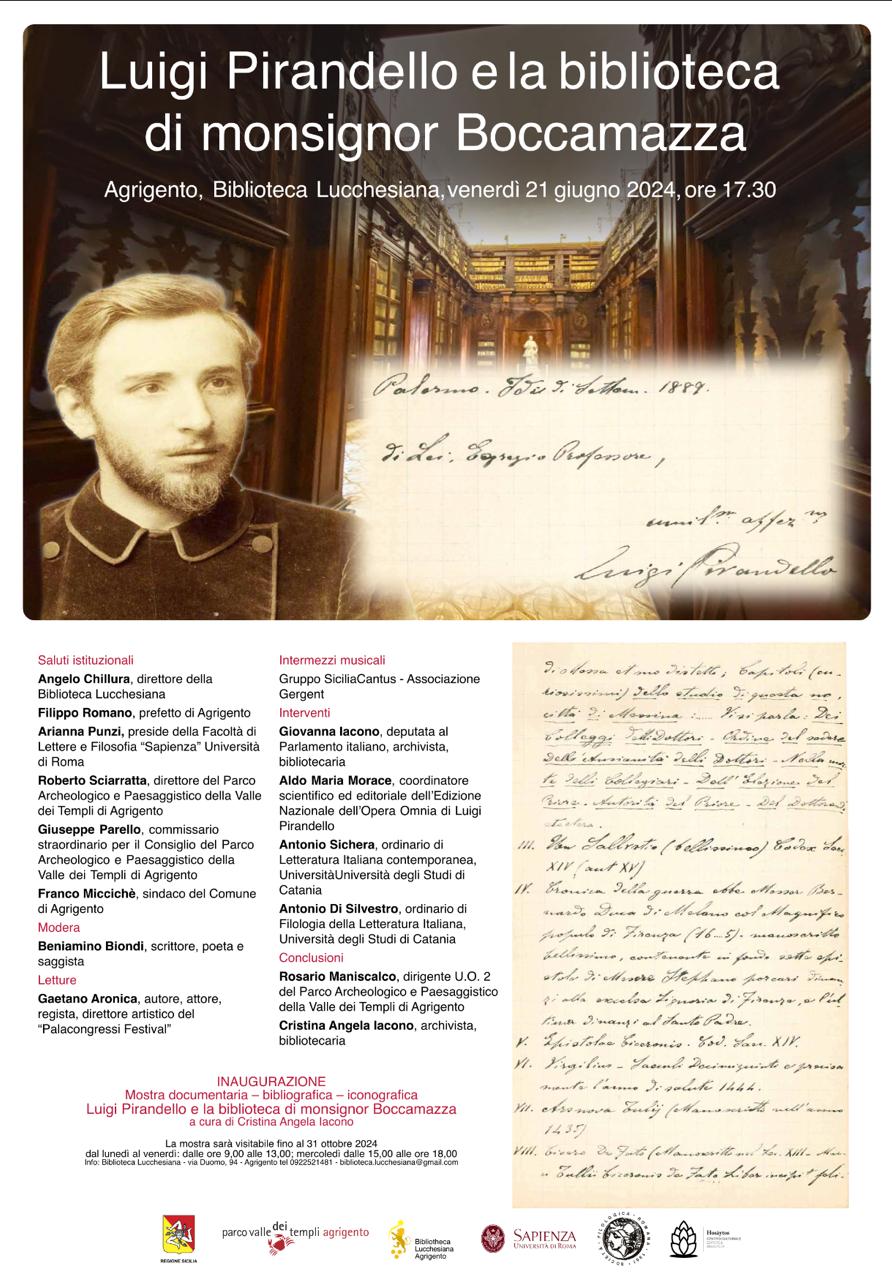 Luigi Pirandello e la biblioteca
di monsignor Boccamazza
Agrigento, Biblioteca Lucchesiana, venerdì 21 giugno 2024, ore 17.30
Palermo. di Settem. 1889.
di Lei, Egregio Professore,
Luigi Pirandello
Saluti istituzionali
Angelo Chillura, direttore della
Biblioteca Lucchesiana
Filippo Romano, prefetto di Agrigento
Arianna Punzi, preside della Facoltà di
Lettere e Filosofia “Sapienza” Università
di Roma
Roberto Sciarratta, direttore del Parco
Archeologico e Paesaggistico della Valle
dei Templi di Agrigento
Giuseppe Parello, commissario
straordinario per il Consiglio del Parco
Archeologico e Paesaggistico della
Valle dei Templi di Agrigento
Franco Miccichè, sindaco del Comune
di Agrigento
Modera
Beniamino Biondi, scrittore, poeta e
saggista
Letture
Gaetano Aronica, autore, attore,
regista, direttore artistico del
“Palacongressi Festival”
Intermezzi musicali
Gruppo SiciliaCantus - Associazione
Gergent
Interventi
Giovanna Iacono, deputata al
Parlamento italiano, archivista,
bibliotecaria
Aldo Maria Morace, coordinatore
scientifico ed editoriale dell’Edizione
Nazionale dell’Opera Omnia di Luigi
Pirandello
Antonio Sichera, ordinario di
Letteratura Italiana contemporanea,
UniversitàUniversità degli Studi di
Catania
Antonio Di Silvestro, ordinario di
Filologia della Letteratura Italiana,
Università degli Studi di Catania
Conclusioni
Rosario Maniscalco, dirigente U.O. 2
del Parco Archeologico e Paesaggistico
della Valle dei Templi di Agrigento
Cristina Angela Iacono, archivista,
bibliotecaria
INAUGURAZIONE
Mostra documentaria – bibliografica – iconografica
Luigi Pirandello e la biblioteca di monsignor Boccamazza
a cura di Cristina Angela Iacono
La mostra sarà visitabile fino al 31 ottobre 2024
dal lunedì al venerdì: dalle ore 9,00 alle 13,00; mercoledì dalle 15,00 alle ore 18,00
Info: Biblioteca Lucchesiana - via Duomo, 94 - Agrigento tel 0922521481 - biblioteca.lucchesiana@gmail.com
Capitoli
dello studio di questa no,
città di Messina Vi si parla: Dei
Colleggi delli Dottori - Ordine del sedere
Dell'Ansianità delli Dottori -
te delli Collegiari - Dell'Elezione del
Priore. Autorità del Priore -
III. Sallustio (bellissimo) Codex
XIV (aut XV)
IV. Cronica della guerra ebbe Messer Ber-
nardo Duca di Melano col Magnifico
populo di Firenza manoscritto
bellissimo, contenente in fondo
stola di Messer Stephano porcari
zi alla excelsa Signoria di Firenza,
dinanzi al Santo Padre.
V. Epistolae Ciceronis. Cod. XIV.
VI. Virgilius - Saeculi Decimiquinti e precisa
mente l'anno di salute 1444.
VII. Ars nova Tulij (Manoscritto nell'anno
1435)
VIII. Cicero De Fato (Manoscritto XIII -
Tullii Ciceronis de Fato Liber incipit
REGIONE SICILIA
parco valle dei templi agrigento
Biblioteca
Lucchesiana
Agrigento
SAPIENZA
UNIVERSITÀ DI ROMA
SOCIETÀ FILOLOGICA ROMANA 1901